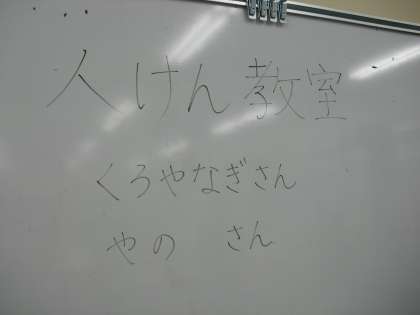 人けん教室
くろやなぎさん
やの さん